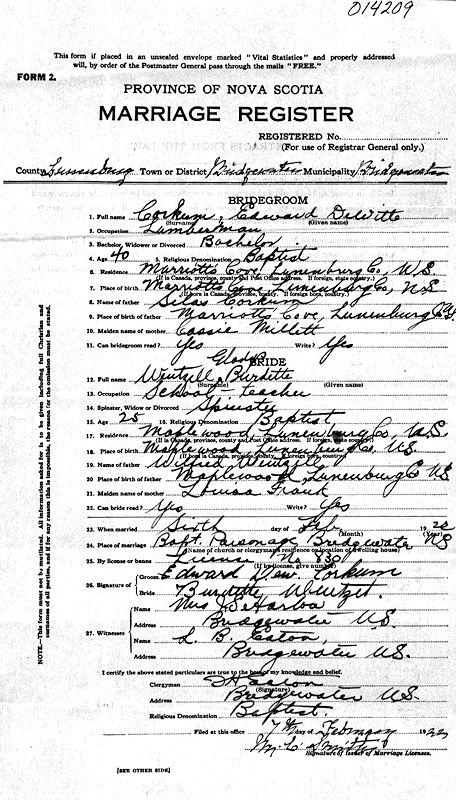 014209
This form if placed in an unsealed envelope marked "Vital Statistics" and properly addressed
will, by order of the Postmaster General pass through the mails "FREE."
FORM 2.
PROVINCE OF NOVA SCOTIA
MARRIAGE REGISTER
REGISTERED No.
(For use of Registrar General only.)
County Lunenburg Town or District Bridgewater Municipality Bridgewater
BRIDEGROOM
1. Full name Corkum, Edward DeWitte
(Surname) (Given name)
2. Occupation Lumberman
3. Bachelor, Widower or Divorced Bachelor
4. Age 40 5. Religious Denomination Baptist
6. Residence Marriotts Cove, Lunenburg Co, N.S.
(If in Canada, province, county and Post Office address. If foreign, state country.)
7. Place of birth Marriotts Cove, Lunenburg Co, N.S
(If born in Canada, province, county. If foreign born, country.)
8. Name of father Silas Corkum
9. Place of birth of father Marriotts Cove, Lunenburg Co
10. Maiden name of mother Cassie Millett
11. Can bridegroom read? Yes Write? Yes
Gladys
BRIDE
12. Full name Wentzell Burdette
(Surname) (Given name)
13. Occupation School-teacher
14. Spinster, Widow or Divorced Spinster
15. Age 25 16. Religious Denomination Baptist
17. Residence Maplewood Lunenburg Co, N.S.
(If in Canada, province, county and Post Office address. If foreign, state country.)
18. Place of birth Maplewood Lunenburg Co, N.S.
(If born in Canada, province, county. If foreign born, country.)
19. Name of father Wilfred Wentzell
20. Place of birth of father Maplewood, Lunenburg Co NS
21. Maiden name of mother Louisa Frank
22. Can bride read? Yes Write? Yes
23. When married Sixth day of Feb. 19
(Month) (Year)
24. Place of marriage Bapt. Parsonage Bridgewater NS
(Name of church or clergyman's residence or location of dwelling house)
25. By license or banns License No 830
(If by license, give number)
26. Signature of Groom Edward Dew. Corkum
Bride Burdette Wentzel
27. Witnesses Name Mrs
Address Bridgewater N.S.
Name L. B. Eaton,
Address Bridgewater N.S.
I certify the above stated particulars are true to the best of my knowledge and belief.
Clergyman Eaton
(Signature)
Address Bridgewater N.S.
Religious Denomination Baptist.
Filed at this office 7th day of February 19
M. C. Smith
Signature of Issuer of Marriage Licenses.
[SEE OTHER SIDE]
NOTE.—This form must not be mutilated. All information asked for is to be given including full Christian and
surnames of all parties, and if for any reason this is impossible, the reason for the omission must be stated.